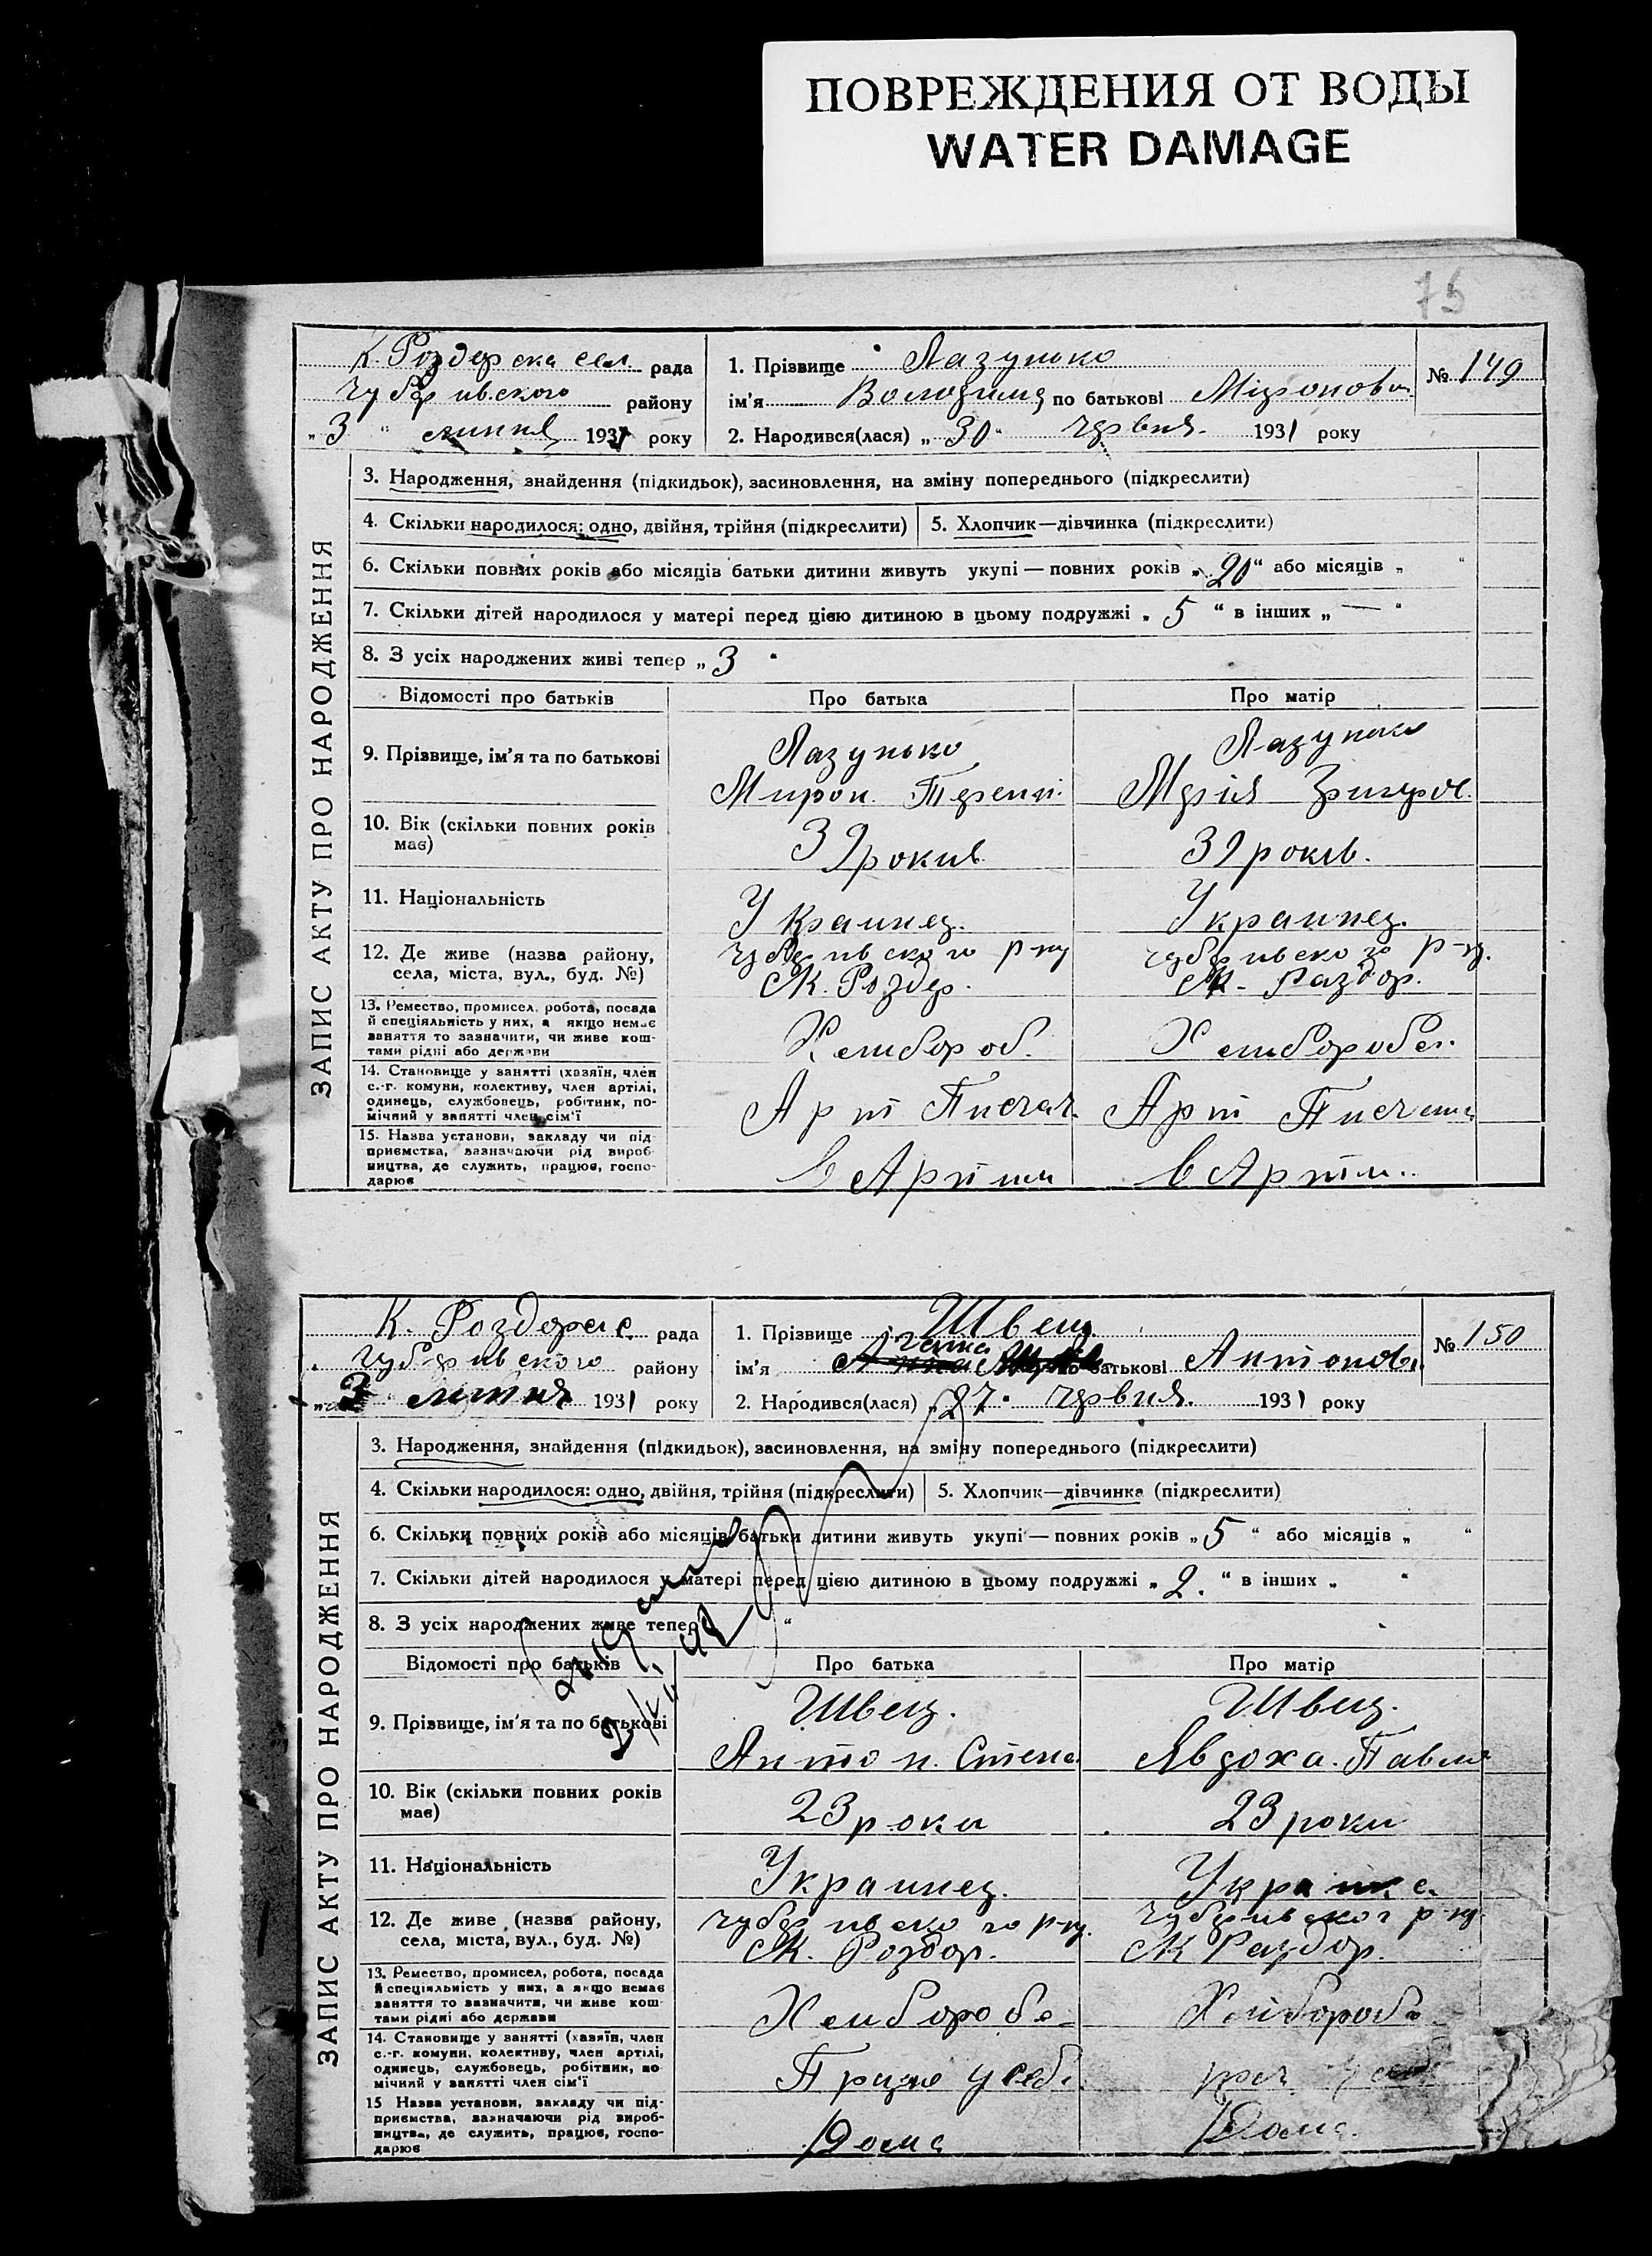 ПОВРЕЖДЕНИЯ ОТ ВОДЫ
WATER DAMAGE
75
К. Роздорска сел рада
Чубарівского району
„ 3 " липня 1931 року
1. Прізвище Лазунько
ім'я Володимир по батькові Міронович
2. Народився(лася) „ 30 " червня 1931 року
№ 149
ЗАПИС АКТУ ПРО НАРОДЖЕННЯ
3. Народження, знайдення (підкидьок), засиновлення, на зміну попереднього (підкреслити)
4. Скільки народилося: одно, двійня, трійня (підкреслити) 5. Хлопчик—дівчинка (підкреслити)
6. Скільки повних років або місяців батьки дитини живуть укупі — повних років „ 20 " або місяців „ "
7. Скільки дітей народилося у матері перед цією дитиною в цьому подружжі „ 5 " в інших „ — "
8. З усіх народжених живі тепер „ 3 "
Відомості про батьків Про батька Про матір
9. Прізвище, ім'я та по батькові
Лазунько Лазунько
Мирон Терент. Марія Григоров.
10. Вік (скільки повних років має)
39 рокив 39 років.
11. Національність
Украинец. Украинец.
12. Де живе (назва району, села, міста, вул., буд. №)
Чубарівского р-ну Чубарівского р-н.
М. Роздор. М. Раздор.
13. Ремество, промисел, робота, посада й спеціяльність у них, а якщо немає заняття то зазначити, чи живе коштами рідні або держави
Хлибороб. Хлибороб.
14. Становище у занятті (хазяїн, член с.-г. комуни, колективу, член артілі, одинець, службовець, робітник, помічний у занятті член сім'ї
Арт Арт
15. Назва установи, закладу чи підприємства, зазначаючи рід виробництва, де служить, працює, господарює
в Артили в Артил.
К. Роздорсе рада
Чубарівского району
„ 3 липня 1931 року
1. Прізвище Швец
ім'я по батькові Антонов.
2. Народився(лася) „ 27 " червня. 1931 року
№ 150
ЗАПИС АКТУ ПРО НАРОДЖЕННЯ
3. Народження, знайдення (підкидьок), засиновлення, на зміну попереднього (підкреслити)
4. Скільки народилося: одно, двійня, трійня (підкреслити) 5. Хлопчик—дівчинка (підкреслити)
6. Скільки повних років або місяців батьки дитини живуть укупі — повних років „ 5 " або місяців „ "
7. Скільки дітей народилося у матері перед цією дитиною в цьому подружжі „ 2. " в інших „ "
8. З усіх народжених живе тепер "
Відомості про батьків Про батька Про матір
9. Прізвище, ім'я та по батькові
Швец. Швец.
Антон. Степа Явдоха. Павл
10. Вік (скільки повних років має)
23 роки 23 роки
11. Національність
Украинец.
12. Де живе (назва району, села, міста, вул., буд. №)
Чубарівского р-н. Чубарівског р-н
М. Роздор. М Раздор.
13. Ремество, промисел, робота, посада й спеціяльність у них, а якщо немає заняття то зазначити, чи живе коштами рідні або держави
Хлибороб Хлибороб
14. Становище у занятті (хазяїн, член с.-г. комуни, колективу, член артілі, одинець, службовець, робітник, помічний у занятті член сім'ї
у себе
15 Назва установи, закладу чи підприємства, зазначаючи рід виробництва, де служить, працює, господарює
Дома Дома.